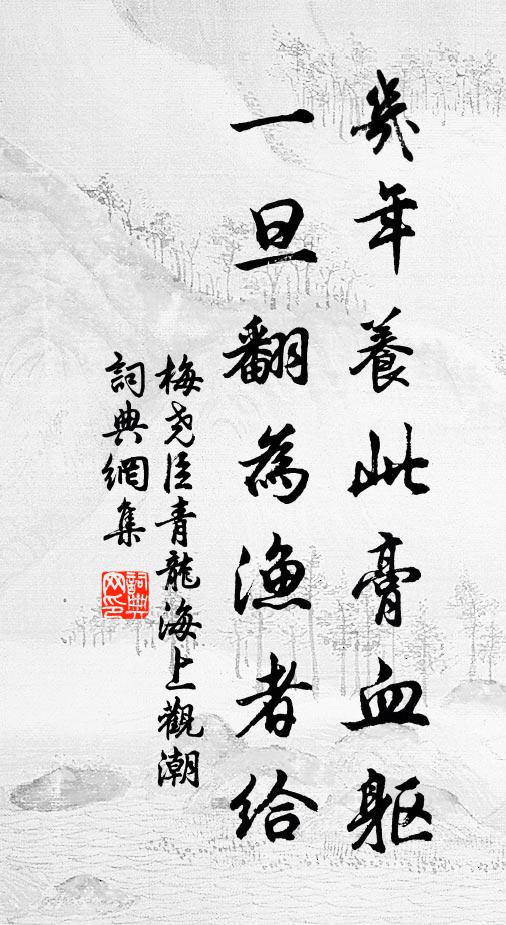 幾年養此膏血軀
一旦翻為漁者給
梅尧臣青龍海上觀潮
詞典網集
詞典网印